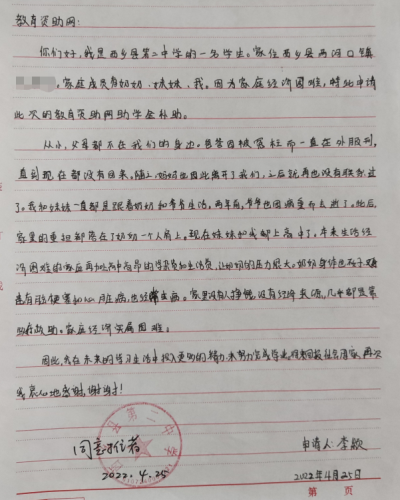 教育资助网：
你们好，我是西乡县第二中学的一名学生。家住西乡县两河口镇
，家庭成员有奶奶、妹妹、我。因为家庭经济困难，特此申请
此次的教育资助网助学金补助。
从小，父母都不在我们的身边。爸爸因被冤枉而一直在外服刑，
直到现在都没有回来，随之妈妈也因此离开了我们，之后就再也没有联系过
了。我和妹妹一直都是跟着奶奶和爷爷生活，两年前，爷爷也因病重而去逝了。此后，
家里的重担都落在了奶奶一个人肩上。现在妹妹和我都上高中了，本来生活经
济困难的家庭再加上高中高昂的学费和生活费，让奶奶的压力很大。奶奶身体也不好
患有脑梗塞和心脏病，也经常生病。家里没有人挣钱，没有经济来源，几乎都是靠
政府救助。家庭经济实属困难；
因此，我在未来的学习生活中投入更多的精力，来努力完成学业，将来回报社会国家，再次
衷心地感谢，谢谢！
第二中学
同意推荐
2022.4.25
申请人：李欣
2022年4月25日
第 页